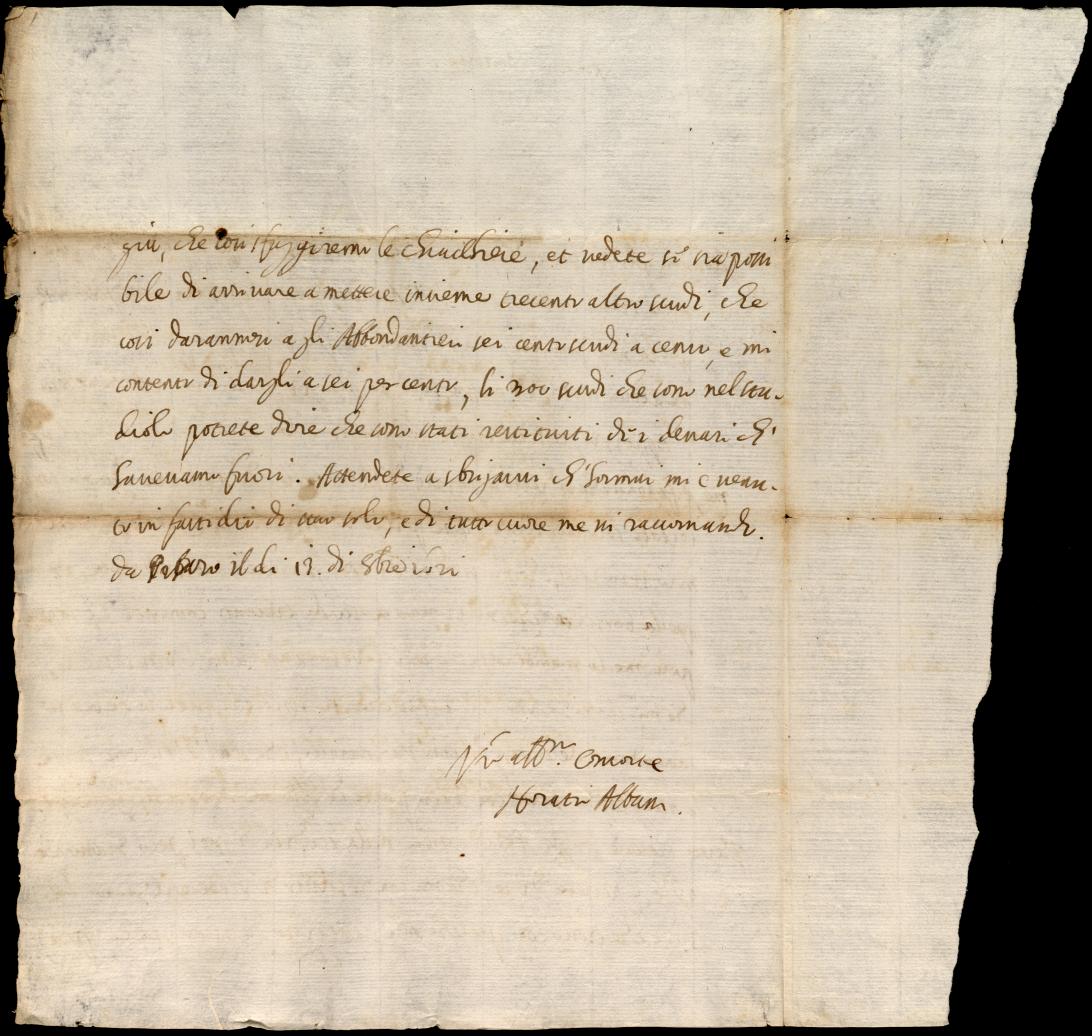 giù, che così sfuggiremo le chiachiere, et vedete si sia possi
bile di arrivare a mettere insieme trecento altro scudi, che
così daranmosi a gli Abbondantieri sei cento scudi a censo, e mi
contento di dargli a sei per cento, li scudi che sono nel stu-
diolo potrete dire che sono stati restituiti di i denari ch'
havevamo fuori. Attendete a sbrigarvi ch'hormai mi è venu-
to in fastidio di star solo, e di tutto cuore me vi raccomando.
da Pesaro il di 13. di 8bre
Vro aff.mo Consorte
Horatio Albani.